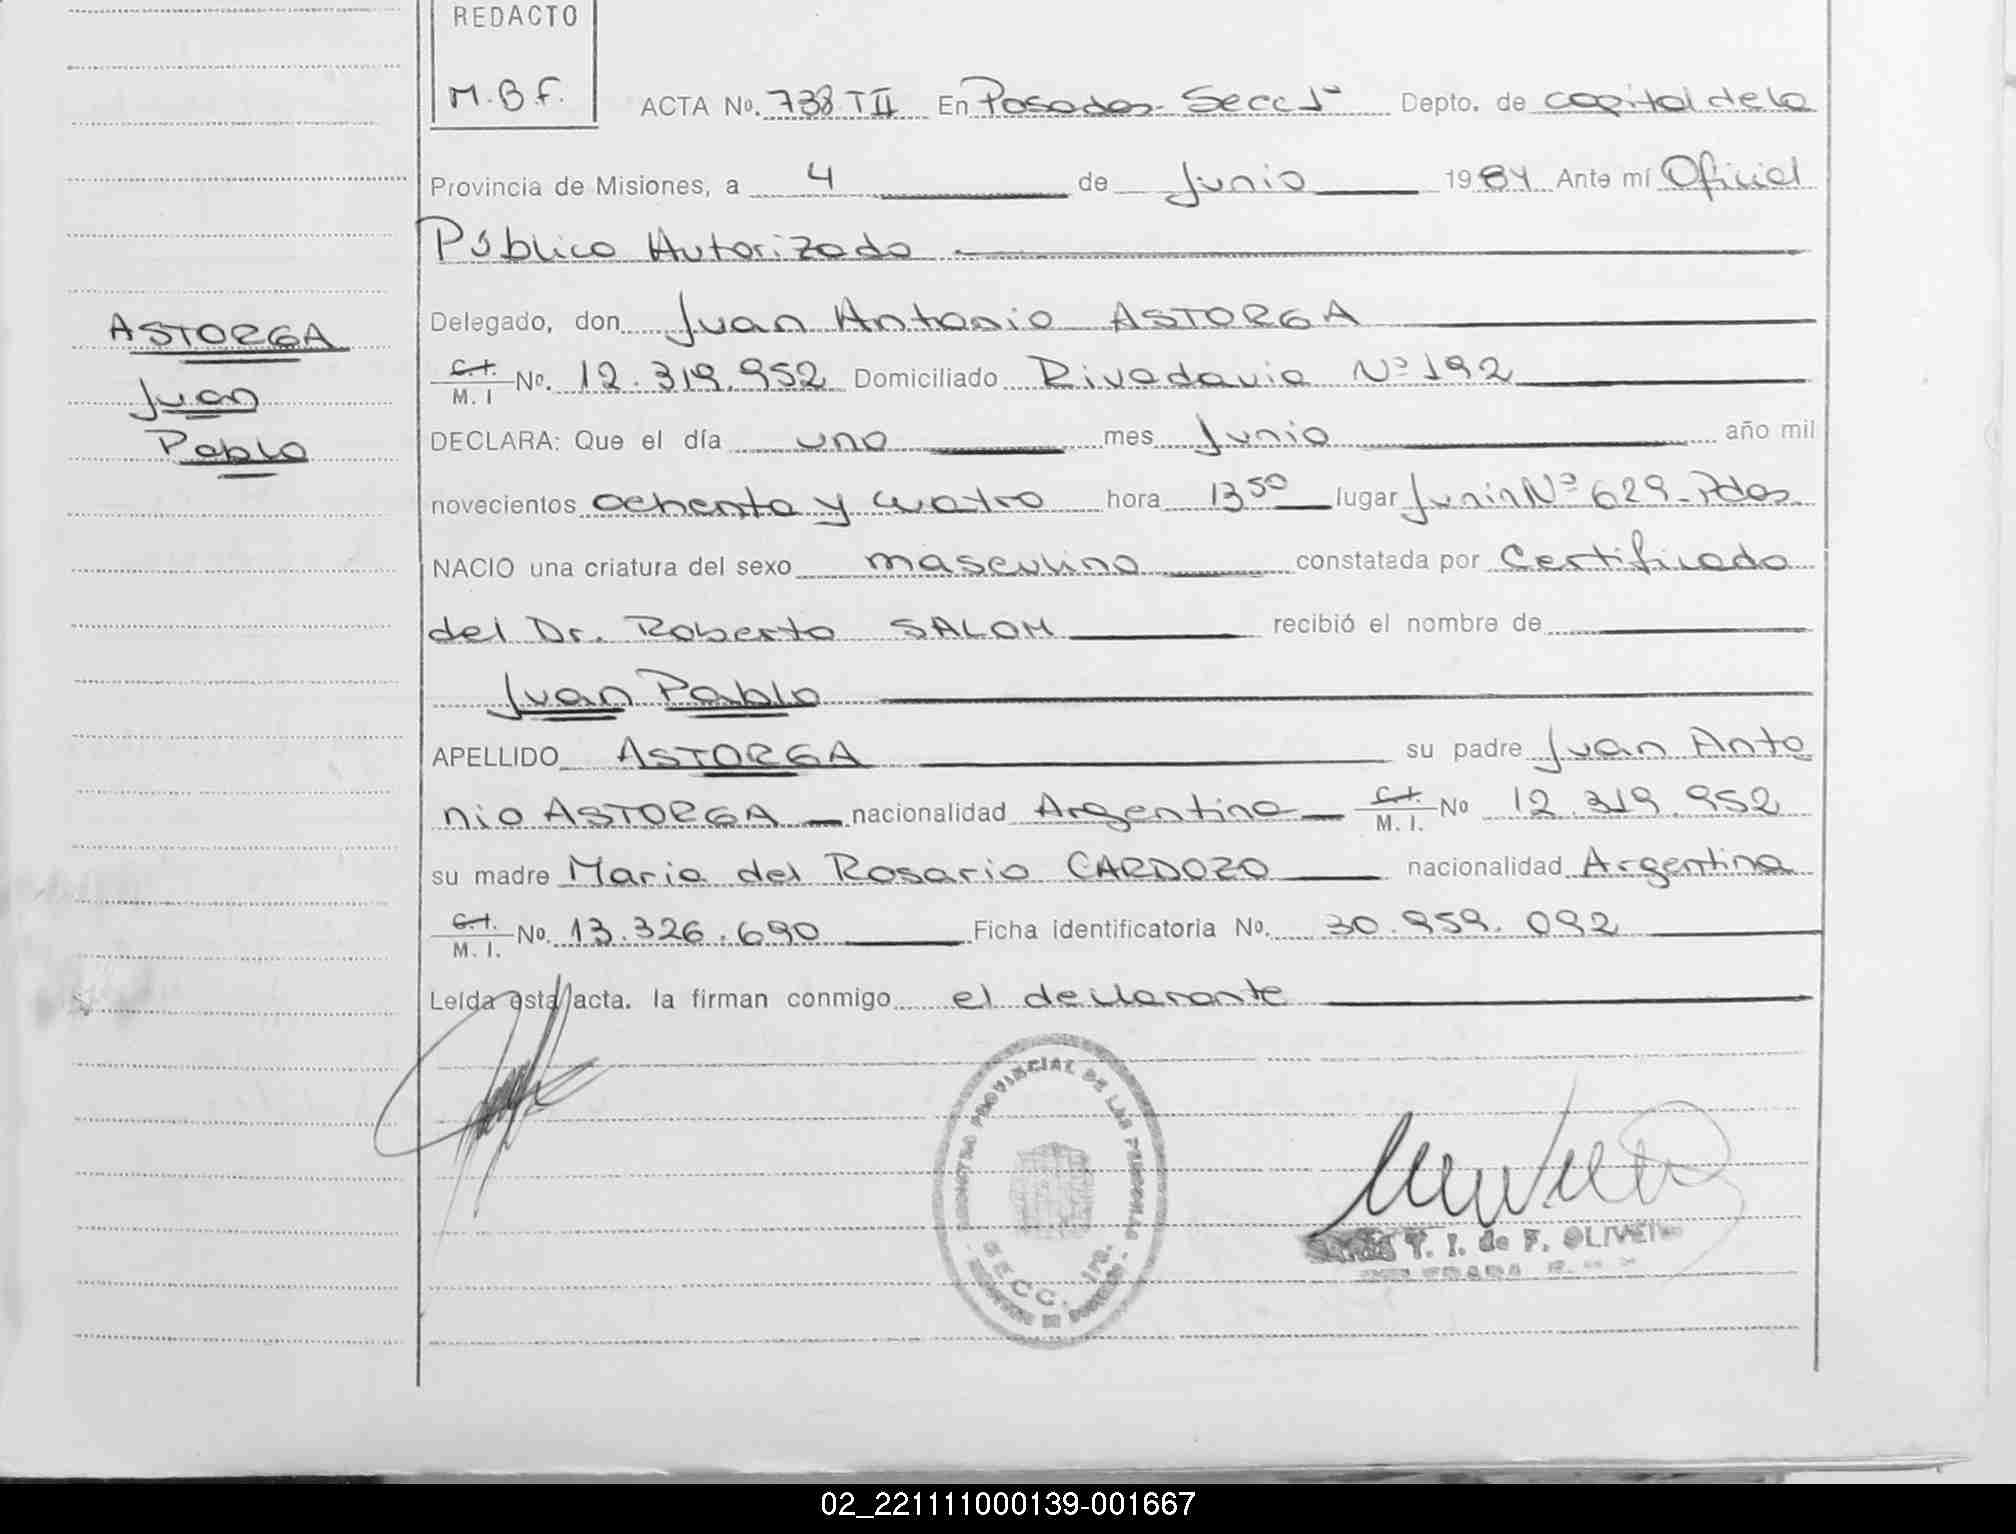 REDACTO
M.B.F.
ACTA No. 738 T II En Posadas - Secc 1ª Depto. de capital de la
Provincia de Misiones, a 4 de Junio 1984 Ante mí Oficial
Público Autorizado
Delegado, don Juan Antonio ASTORGA
C.I. M. I No. 12.319.952 Domiciliado Rivadavia Nº 192
DECLARA: Que el día uno mes Junio año mil
novecientos ochenta y cuatro hora 13 50 lugar Junin Nº 629 - Pdas
NACIO una criatura del sexo masculino constatada por Certificado
del Dr. Roberto SALOM recibió el nombre de
Juan Pablo
APELLIDO ASTORGA su padre Juan Anto
nio ASTORGA nacionalidad Argentina C.I. M. I. No 12.319.952
su madre Maria del Rosario CARDOZO nacionalidad Argentina
C.I. M. I. No. 13.326.690 Ficha identificatoria No. 30.959.092
Leída esta acta. la firman conmigo el declarante
ASTORGA
Juan
Pablo
REGISTRO PROVINCIAL DE LAS PERSONAS
SECC. 1ra.
T. I. de F. OLIVEIRA
02_221111000139-001667